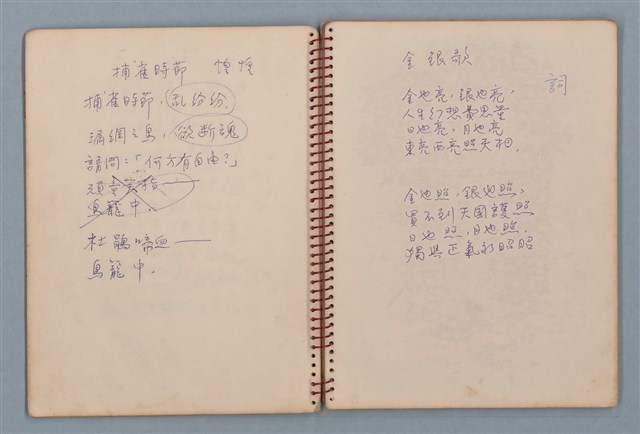 捕雀時節 惶惶
捕雀時節,乱纷纷.
漏網之鳥,欲断魂
請問:「何方有自由?」
頑童
鳥籠中.
杜鵑啼血——
鳥籠中.
金銀歌
詞
金也亮,銀也亮,
人生幻想
日也亮,月也亮
東亮西亮照天
金也照,銀也照,
買不到天國護照
日也照,月也照.
獨與正氣永昭昭